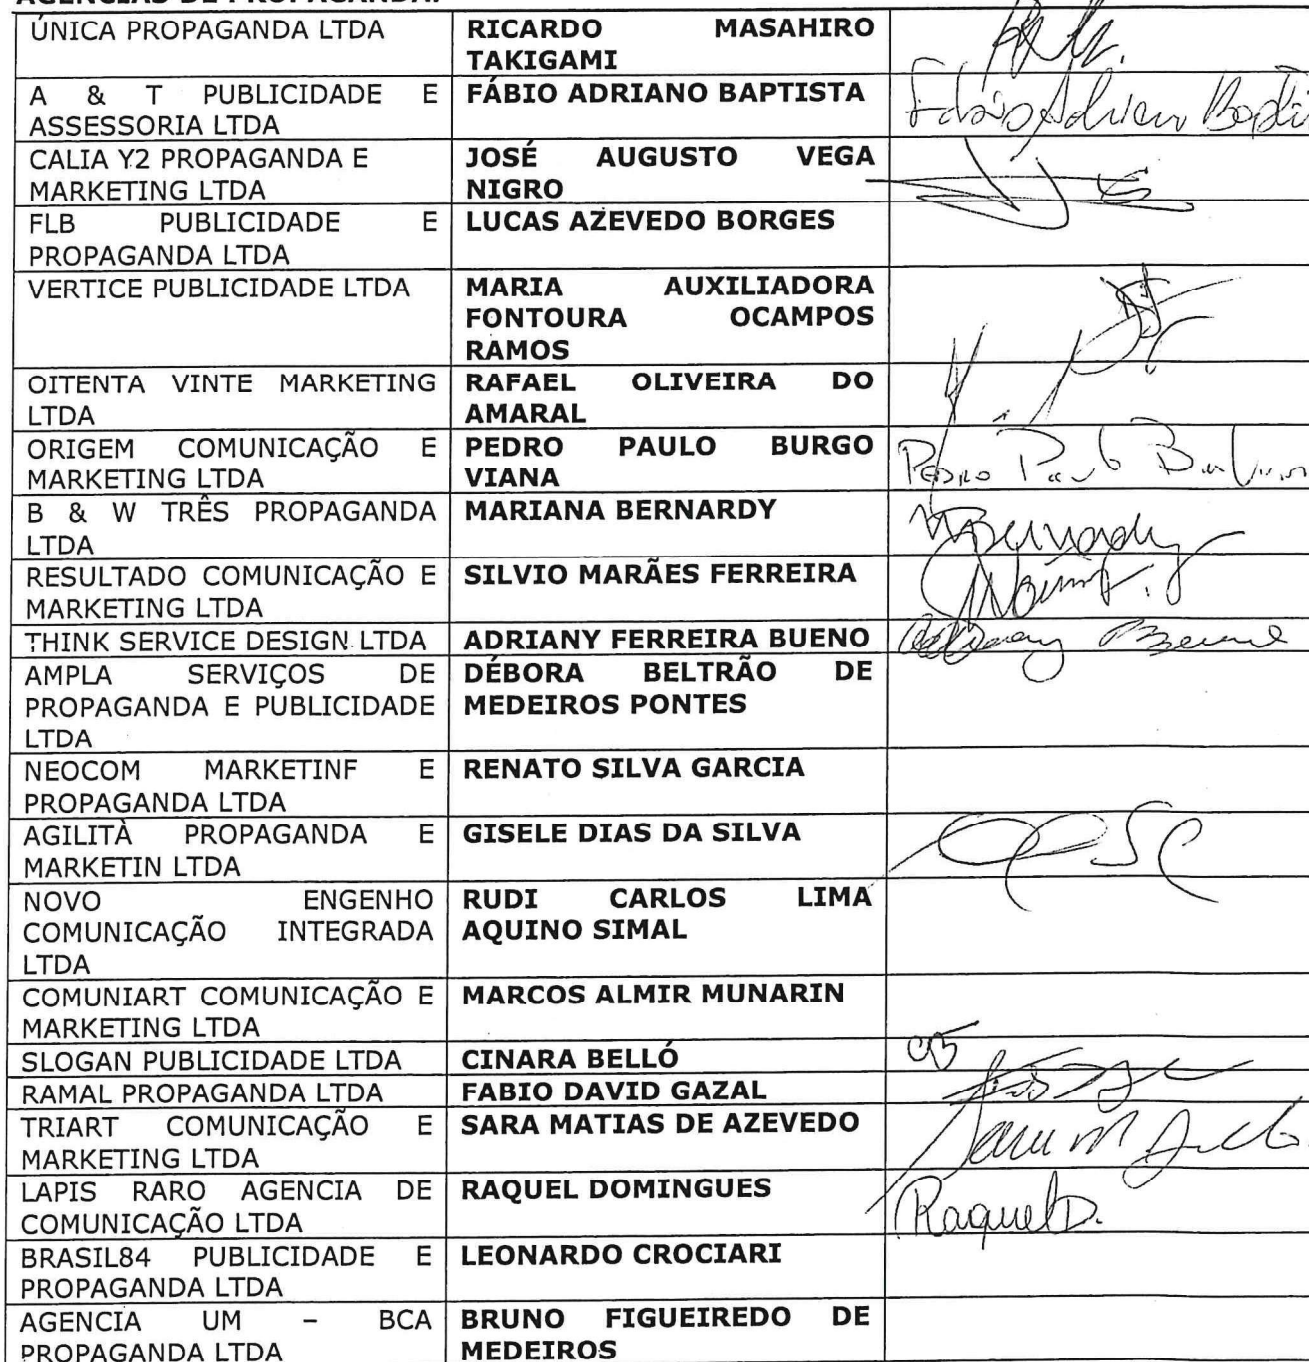 AGÊNCIAS DE PROPAGANDA:
ÚNICA PROPAGANDA LTDA
RICARDO MASAHIRO
TAKIGAMI
A & T PUBLICIDADE E
ASSESSORIA LTDA
FÁBIO ADRIANO BAPTISTA
Fábio Adriano Baptis
CALIA Y2 PROPAGANDA E
MARKETING LTDA
JOSÉ AUGUSTO VEGA
NIGRO
FLB PUBLICIDADE E
PROPAGANDA LTDA
LUCAS AZEVEDO BORGES
VERTICE PUBLICIDADE LTDA
MARIA AUXILIADORA
FONTOURA OCAMPOS
RAMOS
OITENTA VINTE MARKETING
LTDA
RAFAEL OLIVEIRA DO
AMARAL
ORIGEM COMUNICAÇÃO E
MARKETING LTDA
PEDRO PAULO BURGO
VIANA
Pedro Paulo
B & W TRÊS PROPAGANDA
LTDA
MARIANA BERNARDY
MBernardy
RESULTADO COMUNICAÇÃO E
MARKETING LTDA
SILVIO MARÃES FERREIRA
THINK SERVICE DESIGN LTDA
ADRIANY FERREIRA BUENO
Adriany Bueno
AMPLA SERVIÇOS DE
PROPAGANDA E PUBLICIDADE
LTDA
DÉBORA BELTRÃO DE
MEDEIROS PONTES
NEOCOM MARKETINF E
PROPAGANDA LTDA
RENATO SILVA GARCIA
AGILITÀ PROPAGANDA E
MARKETIN LTDA
GISELE DIAS DA SILVA
NOVO ENGENHO
COMUNICAÇÃO INTEGRADA
LTDA
RUDI CARLOS LIMA
AQUINO SIMAL
COMUNIART COMUNICAÇÃO E
MARKETING LTDA
MARCOS ALMIR MUNARIN
SLOGAN PUBLICIDADE LTDA
CINARA BELLÓ
CB
RAMAL PROPAGANDA LTDA
FABIO DAVID GAZAL
TRIART COMUNICAÇÃO E
MARKETING LTDA
SARA MATIAS DE AZEVEDO
LAPIS RARO AGENCIA DE
COMUNICAÇÃO LTDA
RAQUEL DOMINGUES
Raquel D.
BRASIL84 PUBLICIDADE E
PROPAGANDA LTDA
LEONARDO CROCIARI
AGENCIA UM – BCA
PROPAGANDA LTDA
BRUNO FIGUEIREDO DE
MEDEIROS